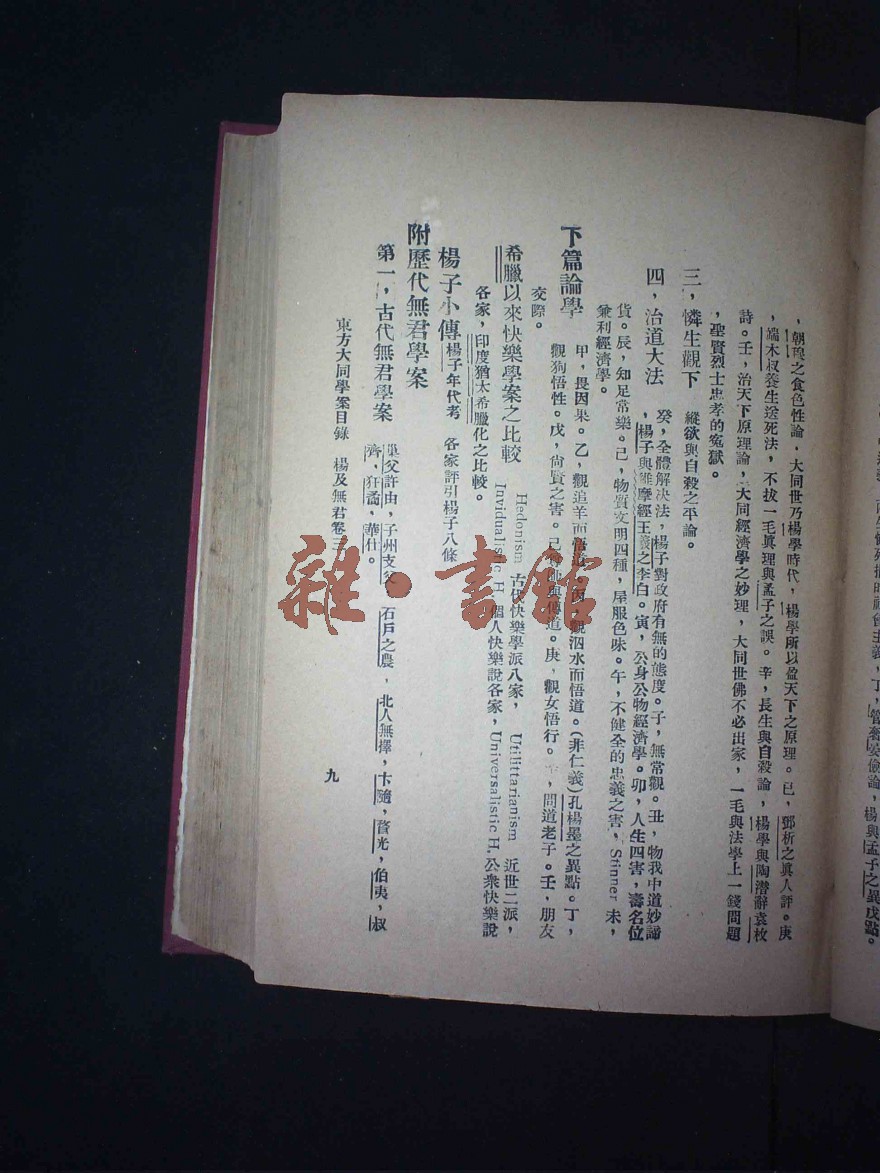 ，朝穆之食色性論，大同世乃楊學時代，楊學所以盈天下之原理。已，鄧析之眞人評。庚
，端木叔養生送死法，不拔一毛眞理與孟子之誤。辛，長生與自殺論，楊學與陶潛辭袁枚
詩。壬，治天下原理論，大同經濟學之妙理，大同世佛不必出家，一毛與法學上一錢問題
，聖賢烈士忠孝的冤獄。
三，憐生觀下　縱欲與自殺之平論。
四，治道大法　癸，全體解決法，楊子對政府有無的態度。子，無常觀。丑，物我中道妙諦
，楊子與維摩經王羲之李白。寅，公身公物經濟學。卯，人生四害，壽名位
貨。辰，知足常樂。已，物質文明四種，屋服色味。午，不健全的忠義之害，Stinner 未，
兼利經濟學。
下篇論學　甲，畏因果。乙，觀追羊而悟道。丙，觀泅水而悟道。(非仁義)孔楊墨之異點。丁，
觀狗悟性。戊，尙賢之害。已，師與傳道。庚，觀女悟行。，問道老子。壬，朋友
交際。
希臘以來快樂學案之比較　Hedonism 古代快樂學派八家，Utilittarianism 近世二派，
Invidualistic H. 個人快樂說各家，Universalistic H. 公衆快樂說
各家，印度猶太希臘化之比較。
楊子小傳　楊子年代考　各家評引楊子八條
附歷代無君學案
第一，古代無君學案　巢父許由，子州支父，石戶之農，北人無擇，卞隨，瞀光，伯夷，叔
齊，狂矞，華仕。
東方大同學案目錄　楊及無君卷三
九
雜·書館